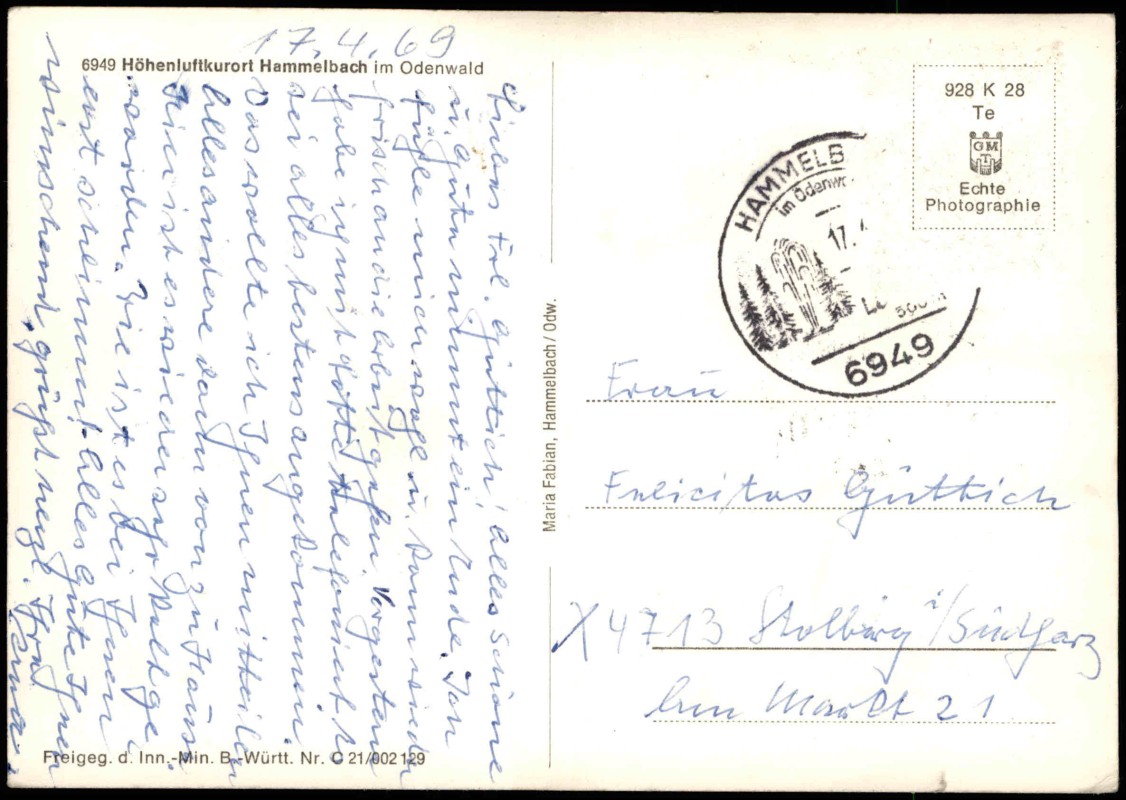 17.4.69
6949 Höhenluftkurort Hammelbach im Odenwald
Liebes Frl. Güttich! Alles Schöne
u. Gute nimmt ein Ende. Ich
fühle mich wohl u. kann wieder
frisch an die Arbeit gehen. Vorgestern
habe ich mit Lotte telefoniert
sei alles bestens angekommen.
Das wollte ich Ihnen mitteilen
Alles andere dann von zu Hause.
Hier ist es wieder sehr kalt ge
worden. Wie ist es bei Ihnen
erst Alles Gute Ihnen
wünschend, grüßt herzl. Ihre
Freigeg. d. Inn.-Min. B.-Württ. Nr. C 21/002129
Maria Fabian, Hammelbach/Odw.
928 K 28
Te
GMT
Echte
Photographie
HAMMELB
im Odenw
17.
500 m
6949
Frau
Felicitas Güttich
X 4713 Stolberg i/Südharz
Am Markt 21